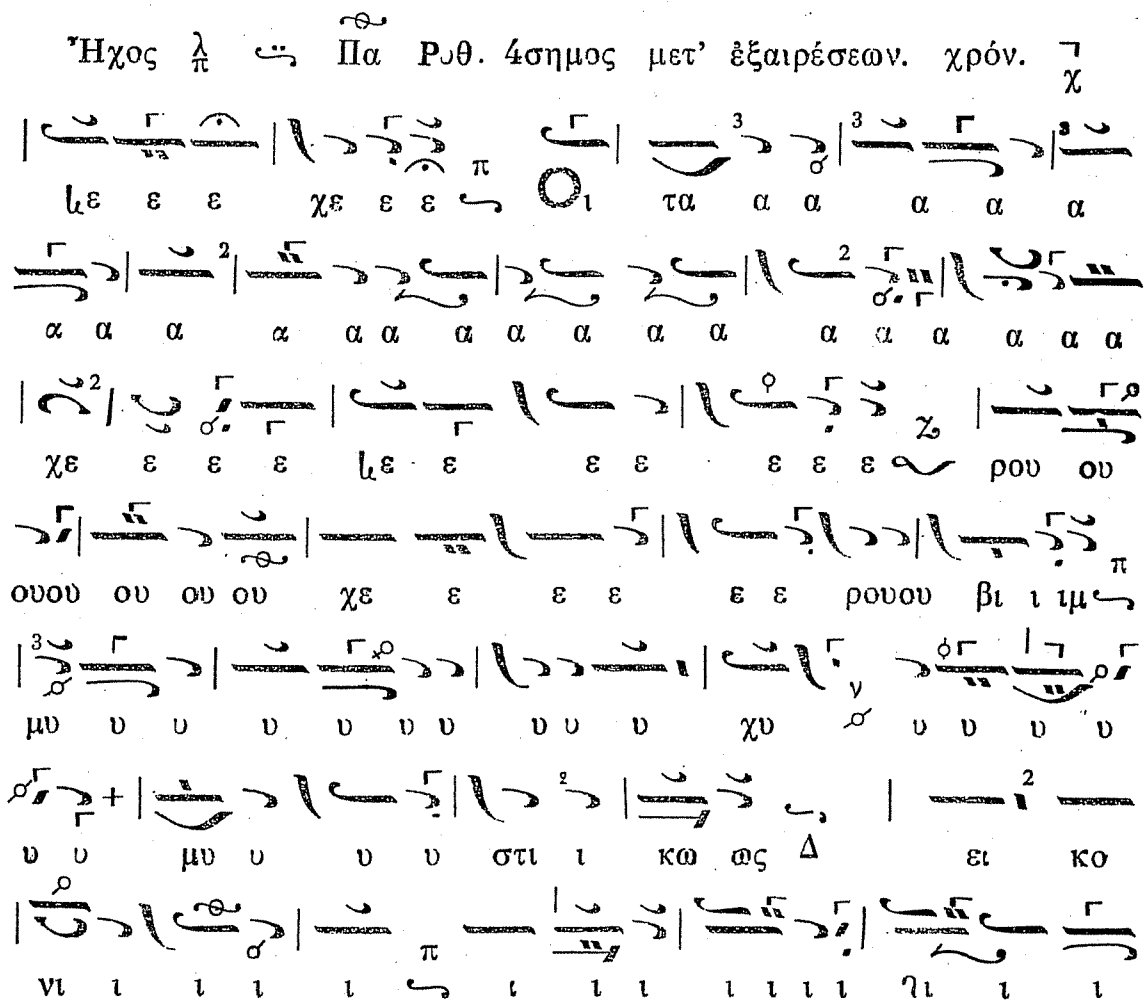 Ἦχος λ/π Πα Ρυθ. 4σημος μετ' ἐξαιρέσεων. χρόν. χ
3 3 3
Νε ε ε χε ε ε π Οι τα α α α α α
2 2
α α α α α α α α α α α α α α α α
2
χε ε ε ε Νε ε ε ε ε ε ε Ζ ρου ου
ουου ου ου ου χε ε ε ε ε ε ρουου βι ι ιμ π
3
μυ υ υ υ υ υ υ υ υ υ χυ ν υ υ υ υ
2 2
υ υ + μυ υ υ υ στι ι κω ως Δ ει κο
νι ι ι ι ι π ι ι ι ι ι ι ι ζι ι ι